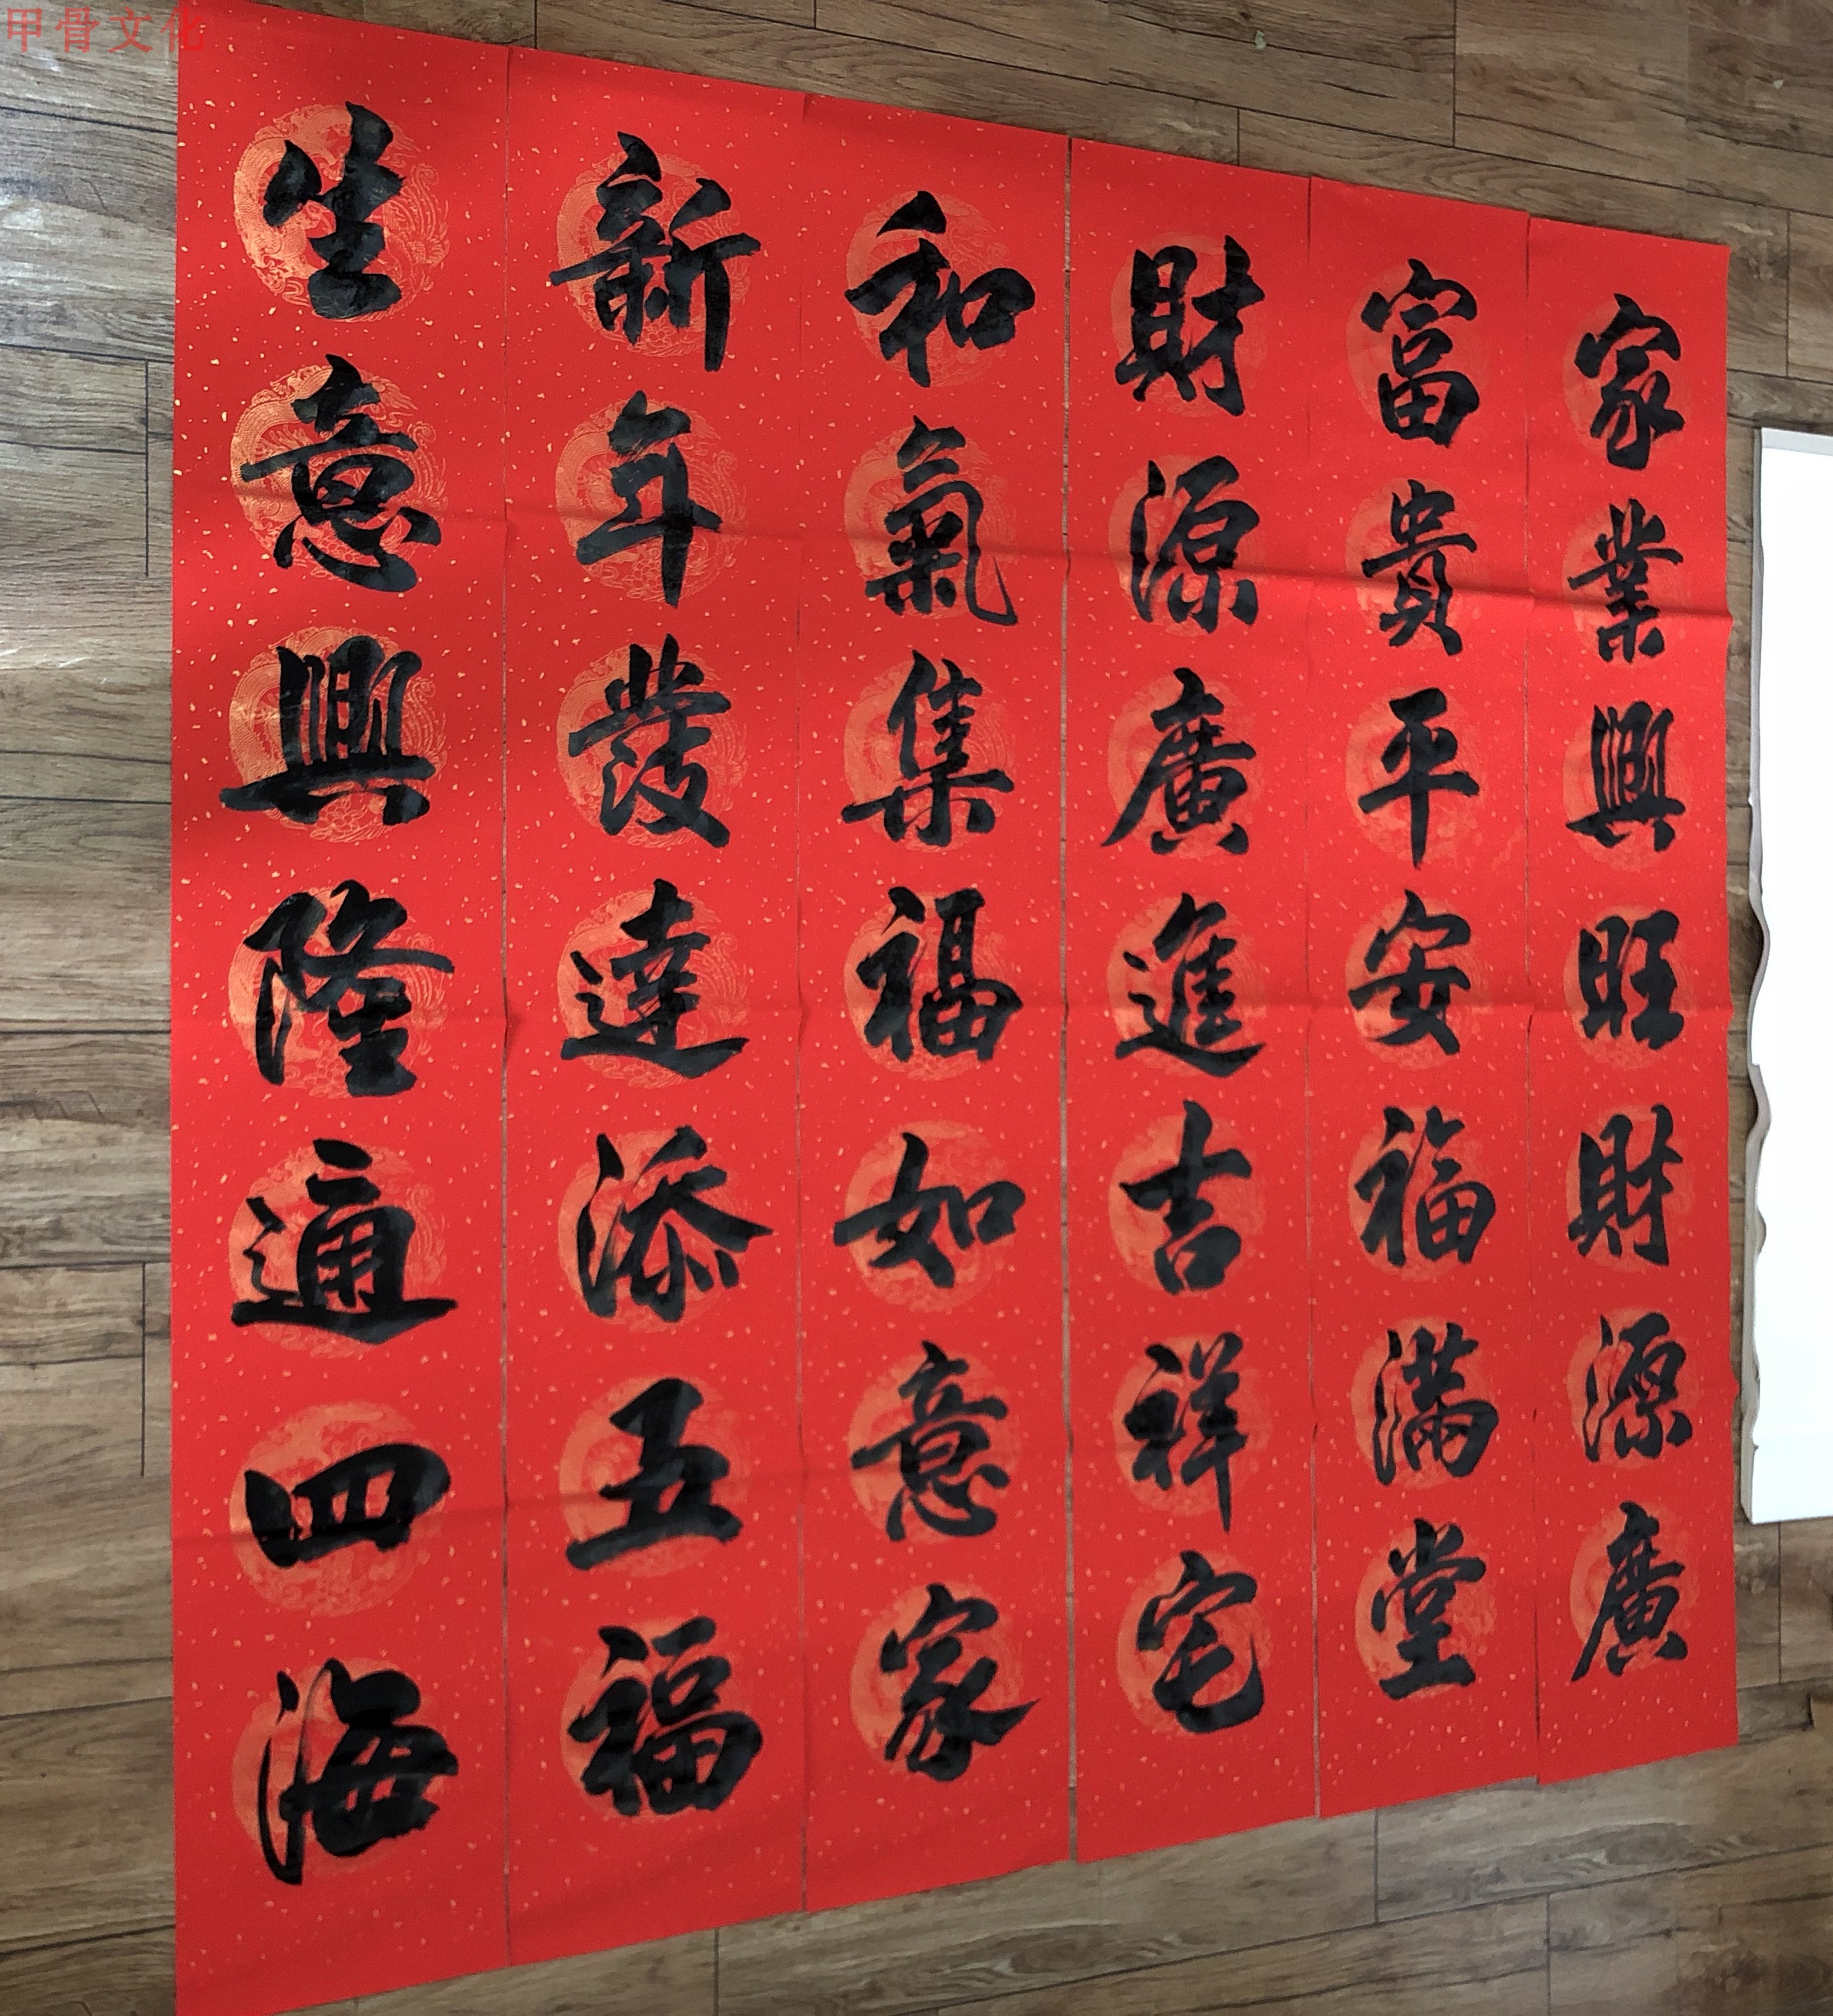 甲骨文化
家業興旺財源廣
富貴平安福滿堂
財源廣進吉祥宅
和氣集福如意家
新年發達添五福
生意興隆通四海